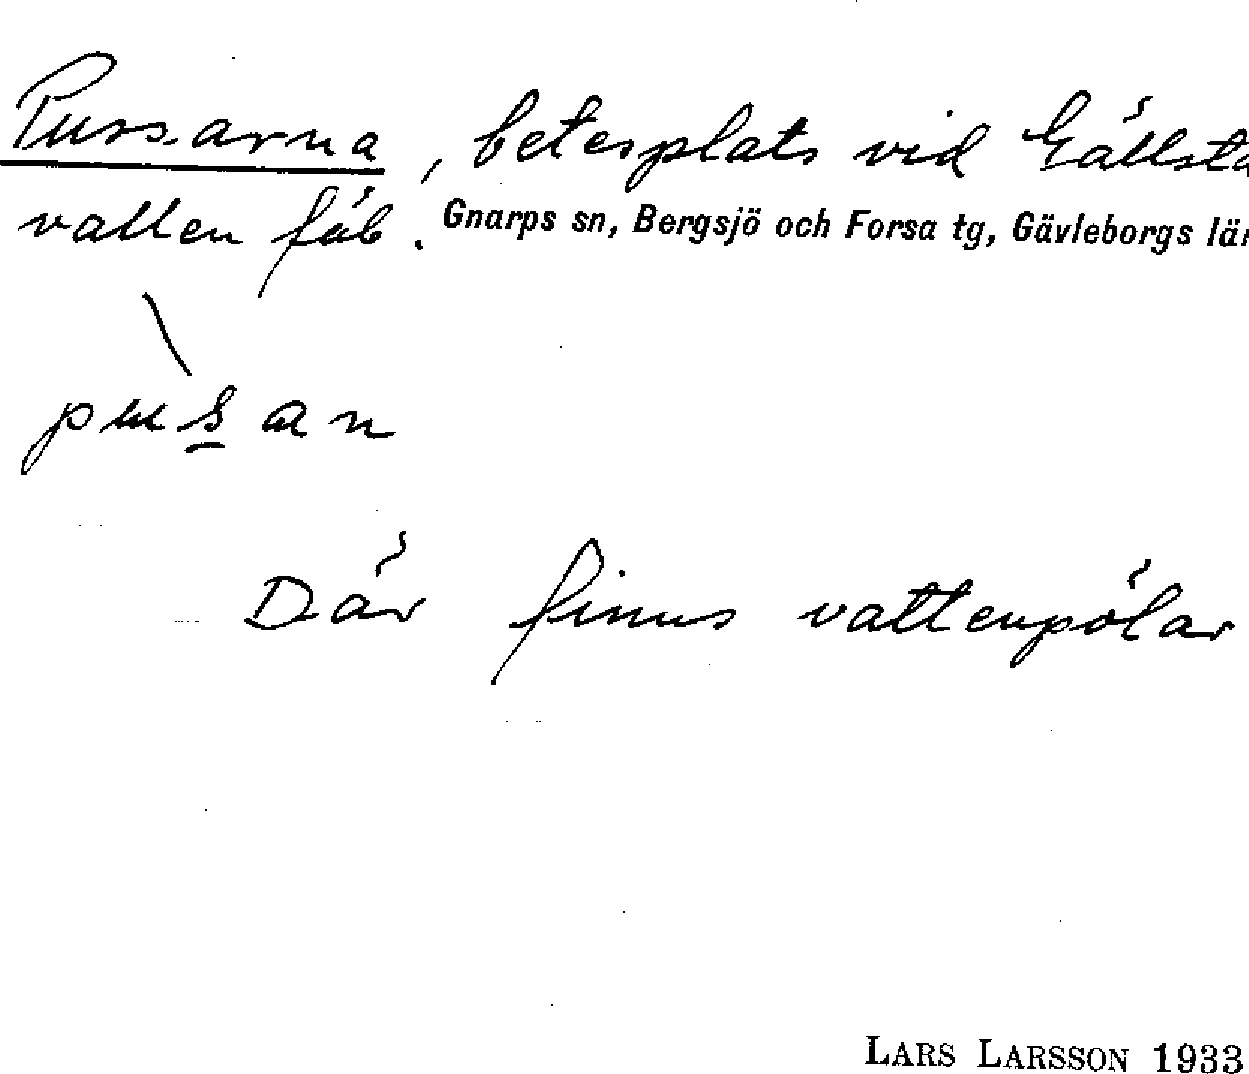 Pussarna, betesplats vid Gällsta
vallen fäb. Gnarps sn, Bergsjö och Forsa tg, Gävleborgs län
\
pusan
Där finns vattenpölar
LARS LARSSON 1933